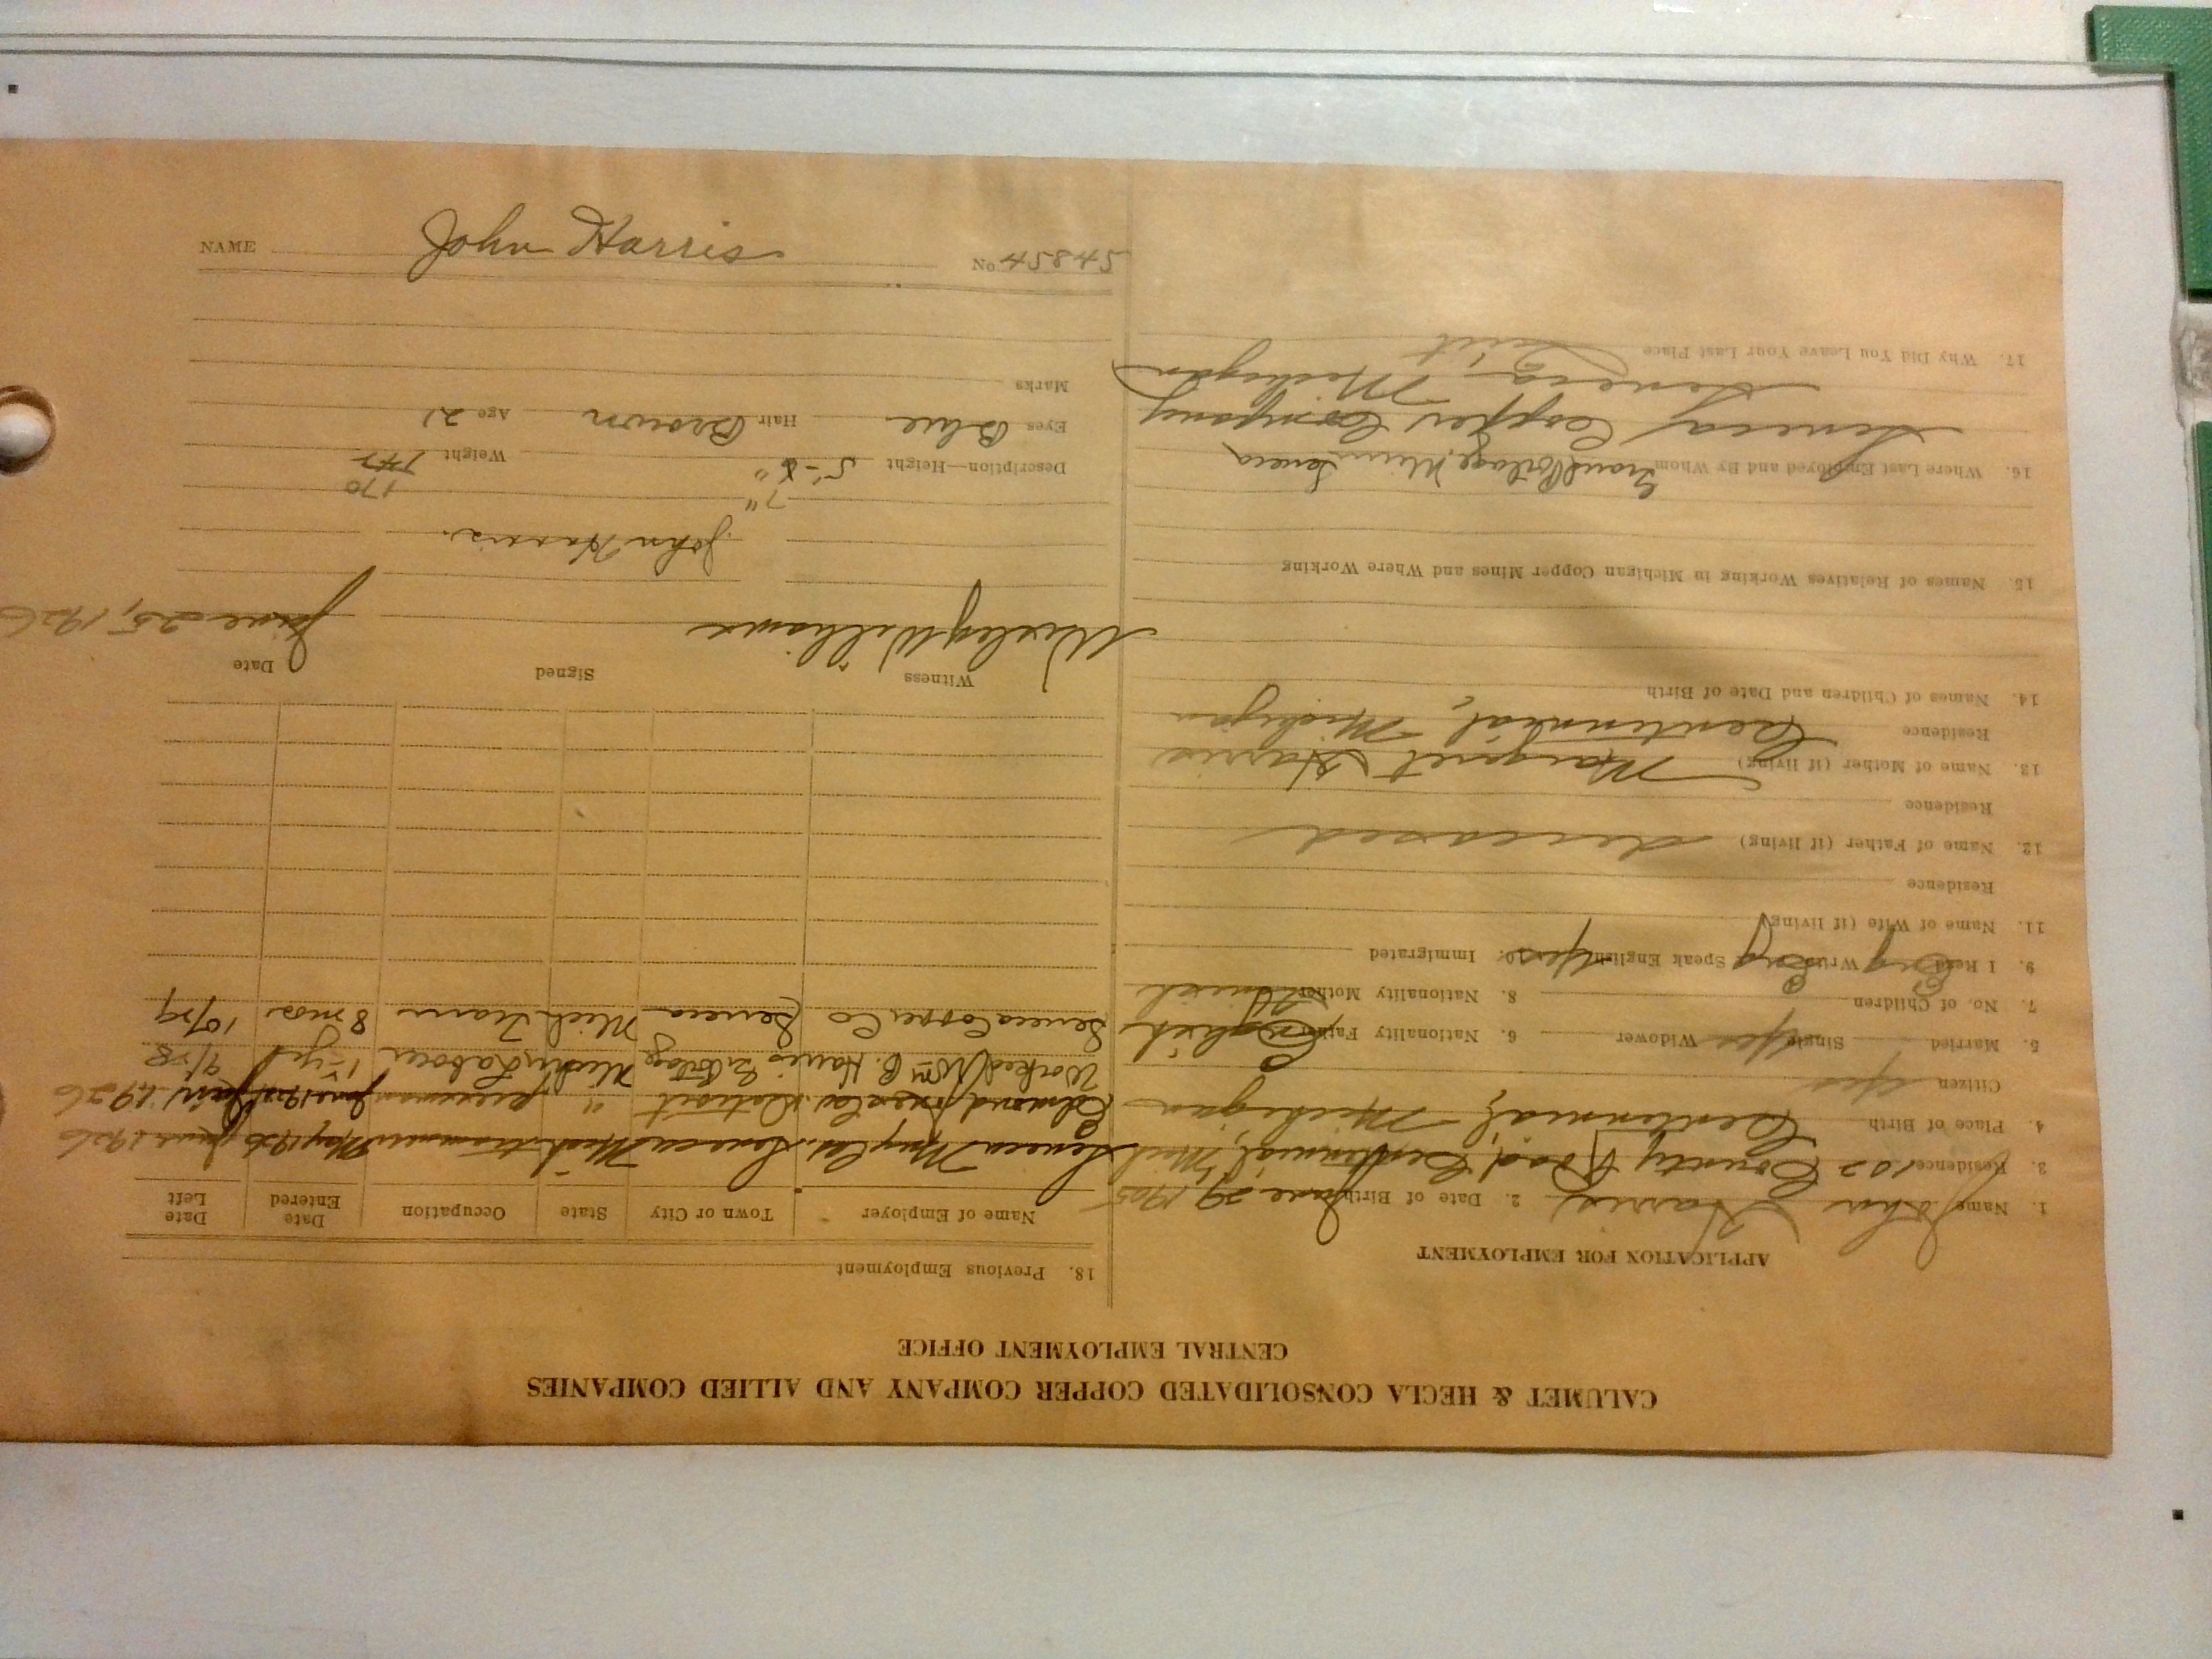 CALUMET & HECLA CONSOLIDATED COPPER COMPANY AND ALLIED COMPANIES
CENTRAL EMPLOYMENT OFFICE
APPLICATION FOR EMPLOYMENT
1. Name John Harris 2. Date of Birth June 29, 1905
3. Residence 102 County Road, Centennial, Mich
4. Place of Birth Centennial, Michigan
Citizen yes
5. Married Single yes Widower 6. Nationality Father English
7. No. of Children 8. Nationality Mother
9. I Read Eng Write Eng Speak English yes 10. Immigrated
11. Name of Wife (if living)
Residence
12. Name of Father (if living) deceased
Residence
13. Name of Mother (if living) Margret Harris
Residence Centennial, Michigan
14. Names of Children and Date of Birth
15. Names of Relatives Working in Michigan Copper Mines and Where Working
16. Where Last Employed and By Whom Grand Portage, Minn Seneca
Seneca Copper Company
Seneca, Michigan
17. Why Did You Leave Your Last Place Quit
18. Previous Employment
Name of Employer Town or City State Occupation Date Entered Date Left
Seneca Mng Co. Seneca Mich trammer May 1926 June 1926
Edmond Detroit " pieceman June 1925 1926
Worked Wm B. Harris Gr. Portage Minn Labor 1 1/2 yrs 9/28
Seneca Copper Co Seneca Mich Tram 8 mos 10/29
Witness Signed Date
Wesley Williams June 25, 1926
John Harris.
7" 170
Description—Height 5'-8" Weight 145
Eyes Blue Hair Brown Age 21
Marks
NAME John Harris No. 45845